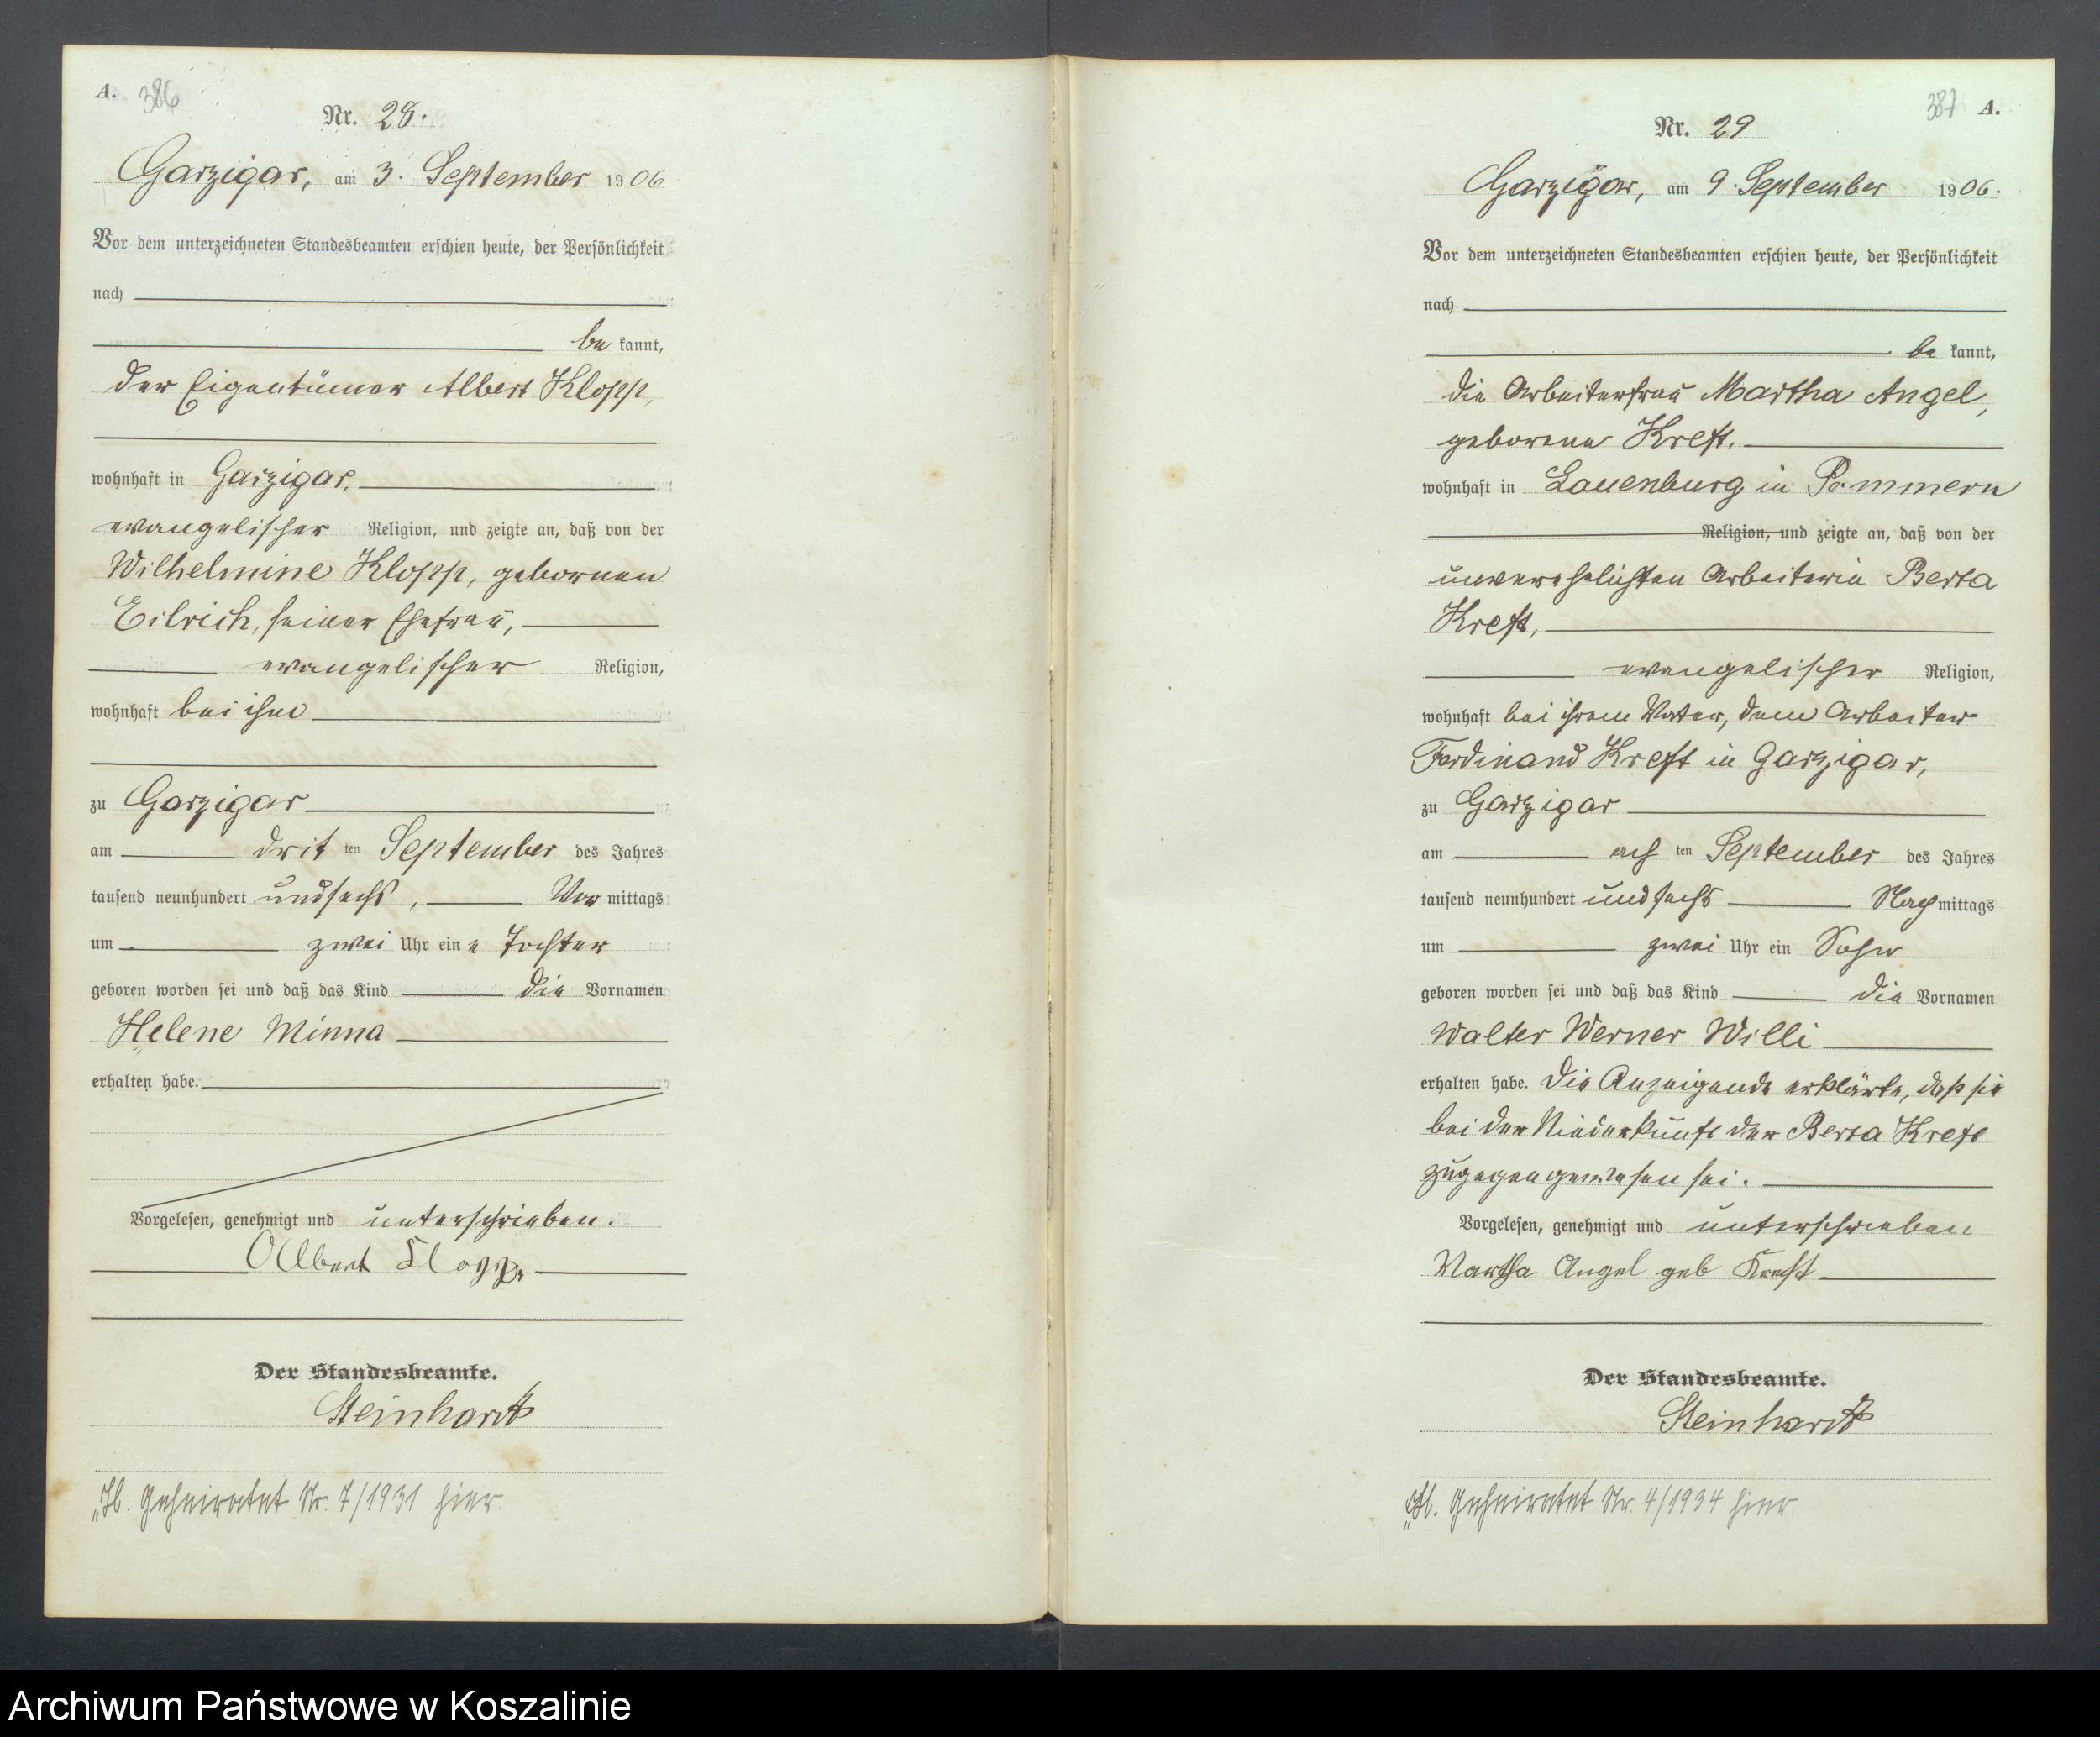 A. 386
Nr. 28.
Garzigar, am 3. September 1906
Vor dem unterzeichneten Standesbeamten erschien heute, der Persönlichkeit
nach
be kannt,
der Eigentümer Albert Klopp,
wohnhaft in Garzigar,
evangelischer Religion, und zeigte an, daß von der
Wilhelmine Klopp, gebornen
Eilrich, seiner Ehefrau,
evangelischer Religion,
wohnhaft bei ihm
zu Garzigar
am dritten September des Jahres
tausend neunhundert undsechs, Vormittags
um zwei Uhr eine Tochter
geboren worden sei und daß das Kind die Vornamen
Helene Minna
erhalten habe.
Vorgelesen, genehmigt und unterschrieben.
Albert Klopp
Der Standesbeamte.
Steinhardt
Geheiratet Nr. 7/1931 hier.
387 A.
Nr. 29
Garzigar, am 9. September 1906.
Vor dem unterzeichneten Standesbeamten erschien heute, der Persönlichkeit
nach
be kannt,
die Arbeiterfrau Martha Angel,
geborene Kreft.
wohnhaft in Lauenburg in Pommern
Religion, und zeigte an, daß von der
unverehelichten Arbeiterin Berta
Kreft,
evangelischer Religion,
wohnhaft bei ihrem Vater, dem Arbeiter
Ferdinand Kreft in Garzigar,
zu Garzigar
am achten September des Jahres
tausend neunhundert undsechs Nachmittags
um zwei Uhr ein Sohn
geboren worden sei und daß das Kind die Vornamen
Walter Werner Willi
erhalten habe. Die Anzeigende erklärte, daß sie
bei der Niederkunft der Berta Kreft
zugegen gewesen sei.
Vorgelesen, genehmigt und unterschrieben
Martha Angel geb Kreft
Der Standesbeamte.
Steinhardt
Geheiratet Nr. 4/1934 hier.
Archiwum Państwowe w Koszalinie